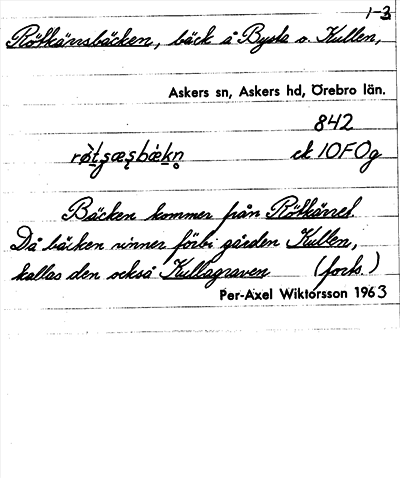 1-3
Rötkärrsbäcken, bäck å Bysta o. Kullen,
Askers sn, Askers hd, Örebro län.
842
ek 10F0g
Bäcken kommer från Rötkärret.
Då bäcken rinner förbi gården Kullen,
kallas den också Kullagraven (forts.)
Per-Axel Wiktorsson 1963